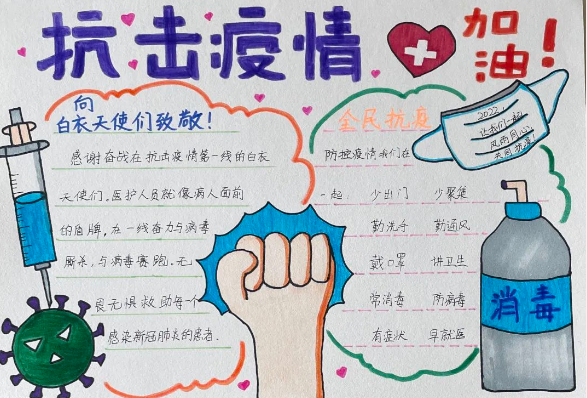 抗击疫情
加油!
向
白衣天使们致敬!
感谢奋战在抗击疫情第一线的白衣
天使们,医护人员就像病人面前
的盾牌,在一线奋力与病毒
厮杀,与病毒赛跑.无
畏无惧救助每个
感染新冠肺炎的患者.
全民抗疫
防控疫情我们在
一起: 少出门 少聚集
勤洗手 勤通风
戴口罩 讲卫生
常消毒 防病毒
有症状 早就医
2022,
让我们一起
风雨同心
消毒